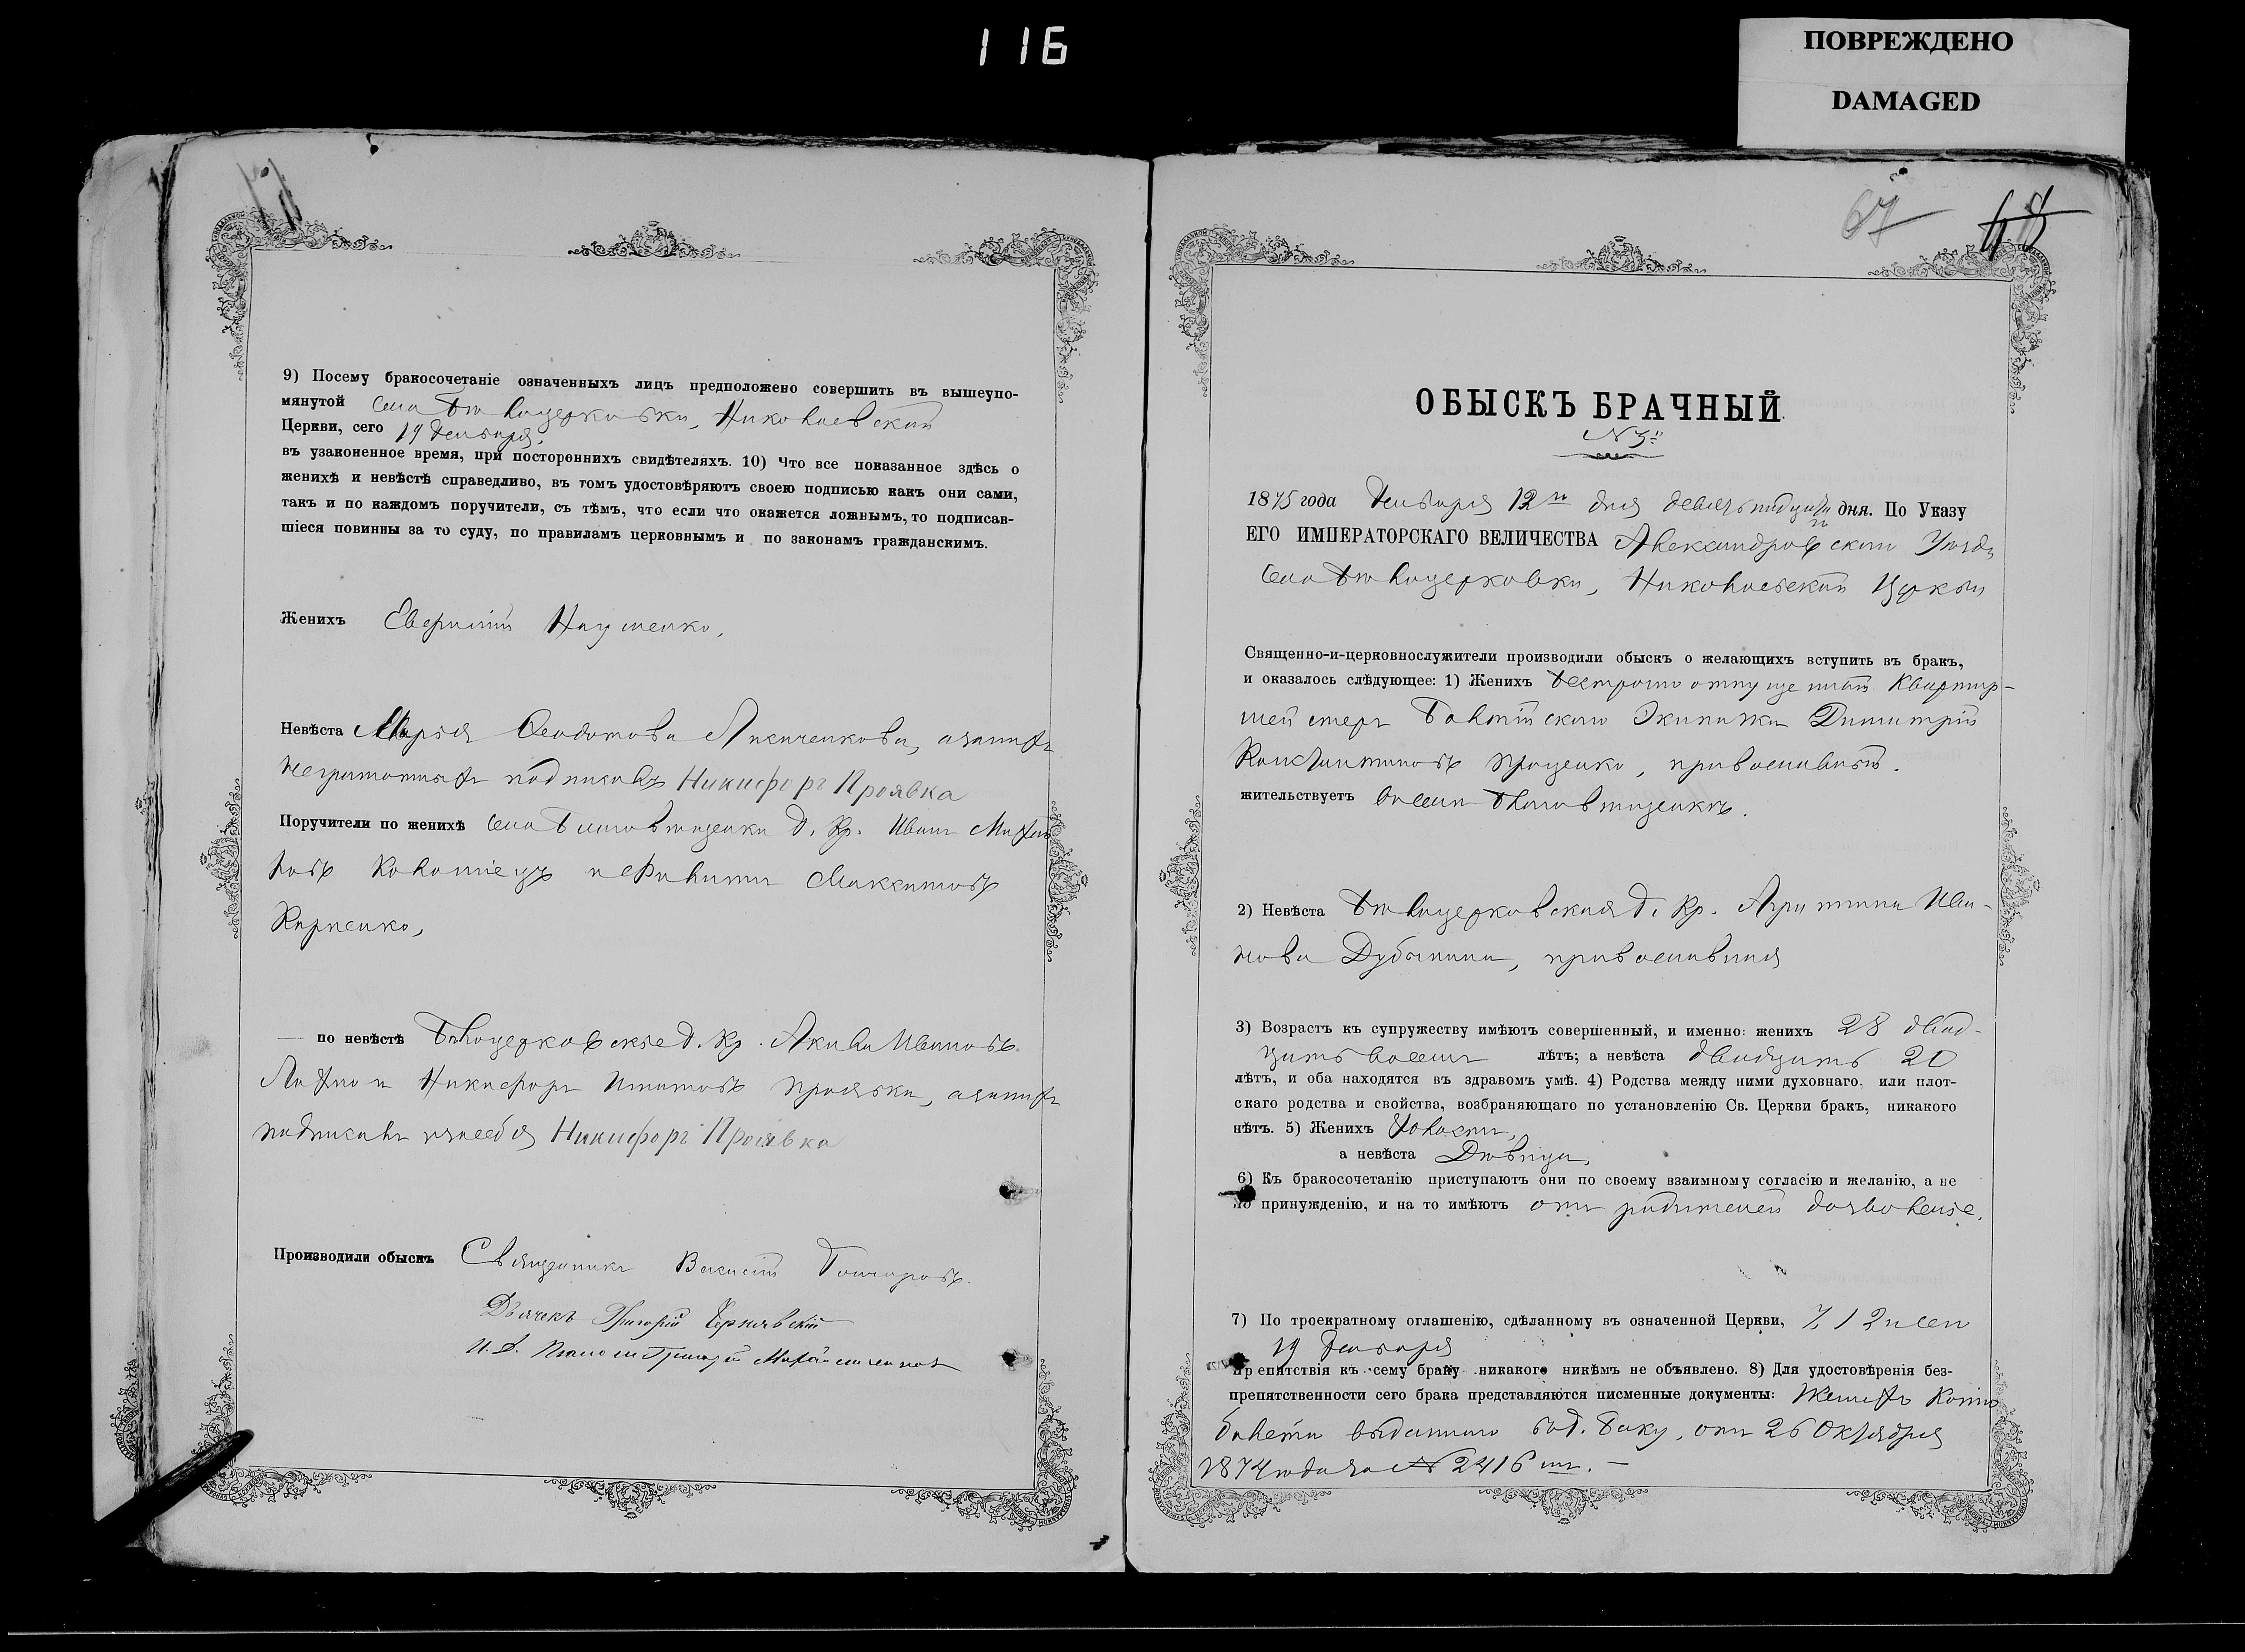 116
ПОВРЕЖДЕНО
DAMAGED
9) Посему бракосочетаніе означенныхъ лицъ предположено совершить въ вышеупо-
мянутой села Бѣлоцерковки, Николаевской
Церкви, сего 19 Января,
въ узаконенное время, при постороннихъ свидѣтеляхъ. 10) Что все показанное здѣсь о
женихѣ и невѣстѣ справедливо, въ томъ удостовѣряютъ своею подписью какъ они сами,
такъ и по каждомъ поручители, съ тѣмъ, что если что окажется ложнымъ, то подписав-
шіеся повинны за то суду, по правиламъ церковнымъ и по законамъ гражданскимъ.
Женихъ Науменко,
Невѣста Марія Ѳеодотова а за нихъ
неграмотныхъ подписалъ Никифоръ Проявка
Поручители по женихѣ села д. Кр. Иванъ
Коломіецъ и Филиппъ Максимовъ
Карпенко,
— по невѣстѣ Бѣлоцерковскіе д. Кр. Ивановъ
Лахно и Никифоръ Проявка, а за нихъ
подписалъ и за себя Никифоръ Проявка
Производили обыскъ Священникъ Василій Гончаровъ.
Дьячекъ Григорій Чернявскій
И. Д.
67 68
ОБЫСКЪ БРАЧНЫЙ
№ 5й
1875 года Января 12го дня девятнадцатаго дня. По Указу
ЕГО ИМПЕРАТОРСКАГО ВЕЛИЧЕСТВА Александровскаго Уѣзда
села Бѣлоцерковки, Николаевской Церкви
Священно-и-церковнослужители производили обыскъ о желающихъ вступить въ бракъ,
и оказалось слѣдующее: 1) Женихъ безсрочно отпускной Квартир-
мейстеръ Балтійскаго Экипажа Димитрій
Константиновъ Проценко, православный.
жительствуетъ въ селѣ
2) Невѣста Бѣлоцерковская д. Кр. Ива-
нова Дубинина, православная
3) Возрастъ къ супружеству имѣютъ совершенный, и именно: женихъ 28 двад-
цать восемь лѣтъ; а невѣста двадцать 20
лѣтъ, и оба находятся въ здравомъ умѣ. 4) Родства между ними духовнаго, или плот-
скаго родства и свойства, возбраняющаго по установленію Св. Церкви бракъ, никакого
нѣтъ. 5) Женихъ Холостъ,
а невѣста Дѣвица,
6) Къ бракосочетанію приступаютъ они по своему взаимному согласію и желанію, а не
по принужденію, и на то имѣютъ отъ родителей дозволеніе.
7) По троекратному оглашенію, сдѣланному въ означенной Церкви, 7, 12 и сего
19 Января
препятствія къ сему браку никакого никѣмъ не объявлено. 8) Для удостовѣренія без-
препятственности сего брака представляются писменные документы: Женихъ Копію
билета выданнаго въ г. Баку, отъ 26 Октября
1874 года за № 2416 мъ. —